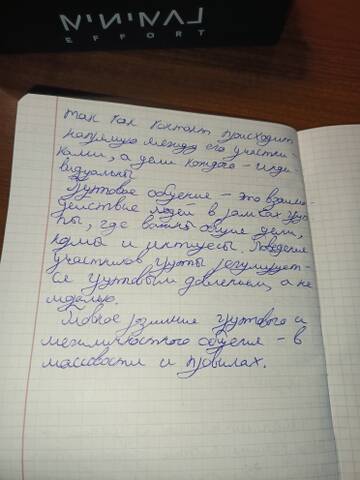 MINIMAL
EFFORT
так как контакт происходит
напрямую между его участни-
ками, а цели каждого - инди-
видуальны.
Групповое общение - это взаимо-
действие людей в рамках груп-
пы, где важны общие цели,
нормы и интересы. Поведение
участников группы регулирует-
ся групповым давлением, а не
моралью.
различие группового и
межличностного общения - в
массовости и правилах.